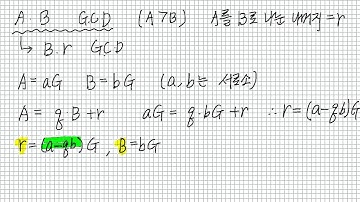 A B GCD (A>B) A를 B로 나눈 나머지=r
↳ B. r GCD
A=aG B=bG (a,b는 서로소)
A = q·B+r aG = q·bG+r ∴ r=(a-qb)G
r=(a-qb)G, B=bG